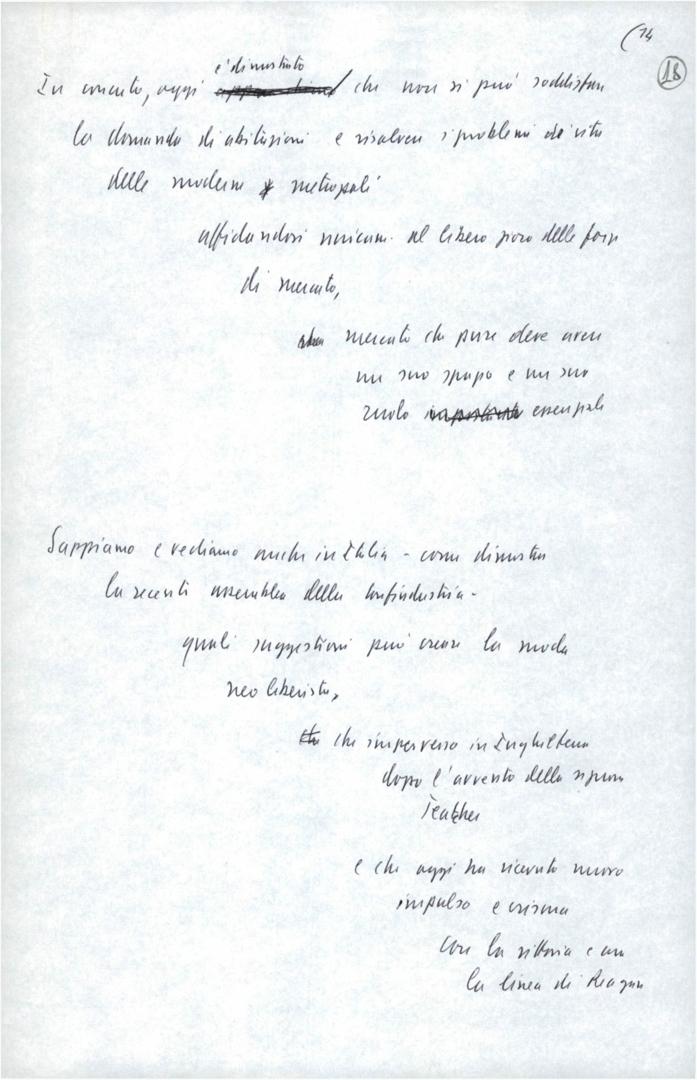 (14
18
è dimostrato
In concreto, oggi che non si può soddisfare
la domanda di abitazioni e risolvere i problemi di vita
delle moderne metropoli
affidandosi unicam. al libero gioco delle forze
di mercato,
mercato che pure deve avere
un suo spazio e un suo
ruolo importante essenziale
Sappiamo e vediamo anche in Italia - come dimostra
la recente assemblea della Confindustria -
quali suggestioni può creare la moda
neo liberista,
che imperversa in Inghilterra
dopo l'avvento della signora
Teatcher
e che oggi ha ricevuto nuovo
impulso e crisma
con la vittoria e con
la linea di Reagan